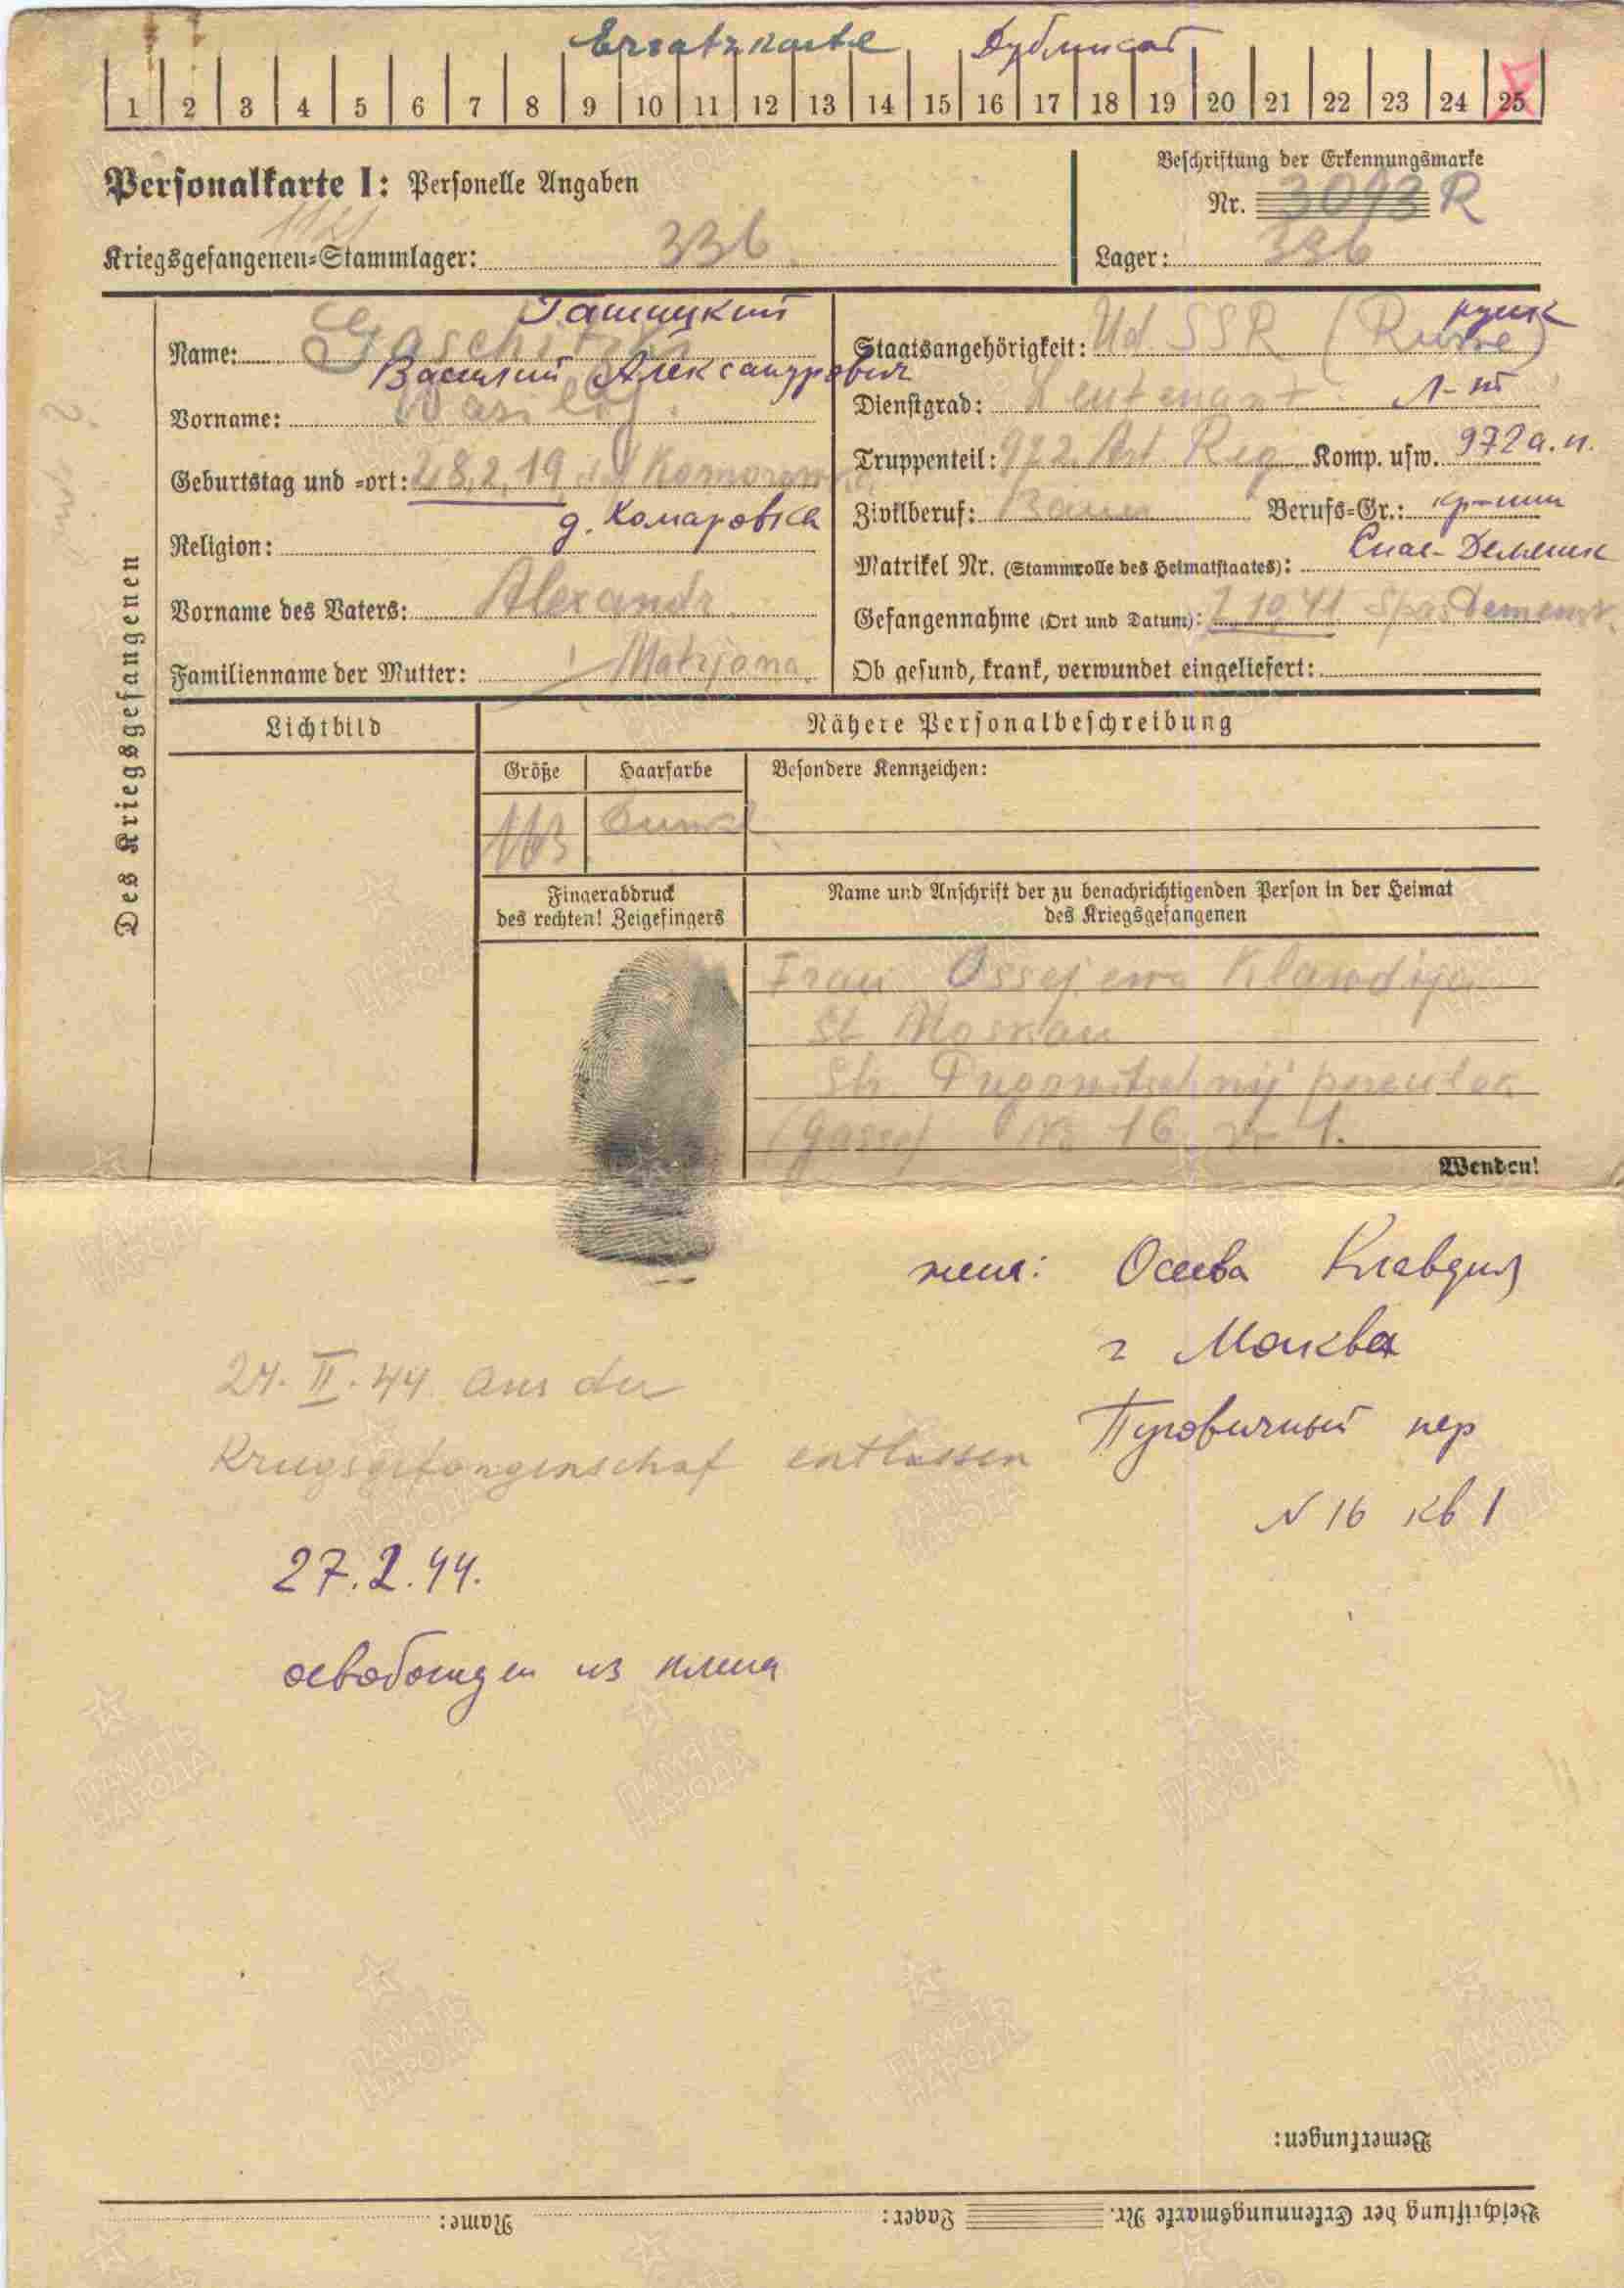 Ersatzkarte Дубликат
1 2 3 4 5 6 7 8 9 10 11 12 13 14 15 16 17 18 19 20 21 22 23 24 25
Personalkarte I: Personelle Angaben
Kriegsgefangenen-Stammlager: 336
Beschriftung der Erkennungsmarke
Nr. 3093 R
Lager: 336
Des Kriegsgefangenen
Гашицкий
Name: Gaschitzki
Василий Александрович
Vorname: Wasilij
Geburtstag und -ort: 28.2.19 Komorowka
д. Комаровка
Religion:
Vorname des Vaters: Alexandr
Familienname der Mutter: Matrjona
русск
Staatsangehörigkeit: Ud. SSR (Russe)
Dienstgrad: Leutenant Л-нт
Truppenteil: 972 Art. Reg Komp. usw. 972 а.п.
Zivilberuf: Bauer Berufs-Gr.: кр-нин
Спас-Деменск
Matrikel Nr. (Stammrolle des Heimatstaates):
Gefangennahme (Ort und Datum): 7.10.41 Spas Demensk
Ob gesund, krank, verwundet eingeliefert:
Lichtbild
Nähere Personalbeschreibung
Größe Haarfarbe Besondere Kennzeichen:
163 Dunkel
Fingerabdruck
des rechten! Zeigefingers
Name und Anschrift der zu benachrichtigenden Person in der Heimat
des Kriegsgefangenen
Frau Ossejewa Klawdija
St. Moskau
Str. Pugowitschnij pereulok
(gasse) № 16 1.
Wenden!
жена: Осеева Клавдия
г Москва
Пуговичный пер
N 16 кв 1
27. II. 44 aus der
Kriegsgefangenschaf entlassen
27.2.44.
освобожден из плена
Bemerkungen:
Beschriftung der Erkennungsmarke Nr. Lager: Name:
ПАМЯТЬ НАРОДА